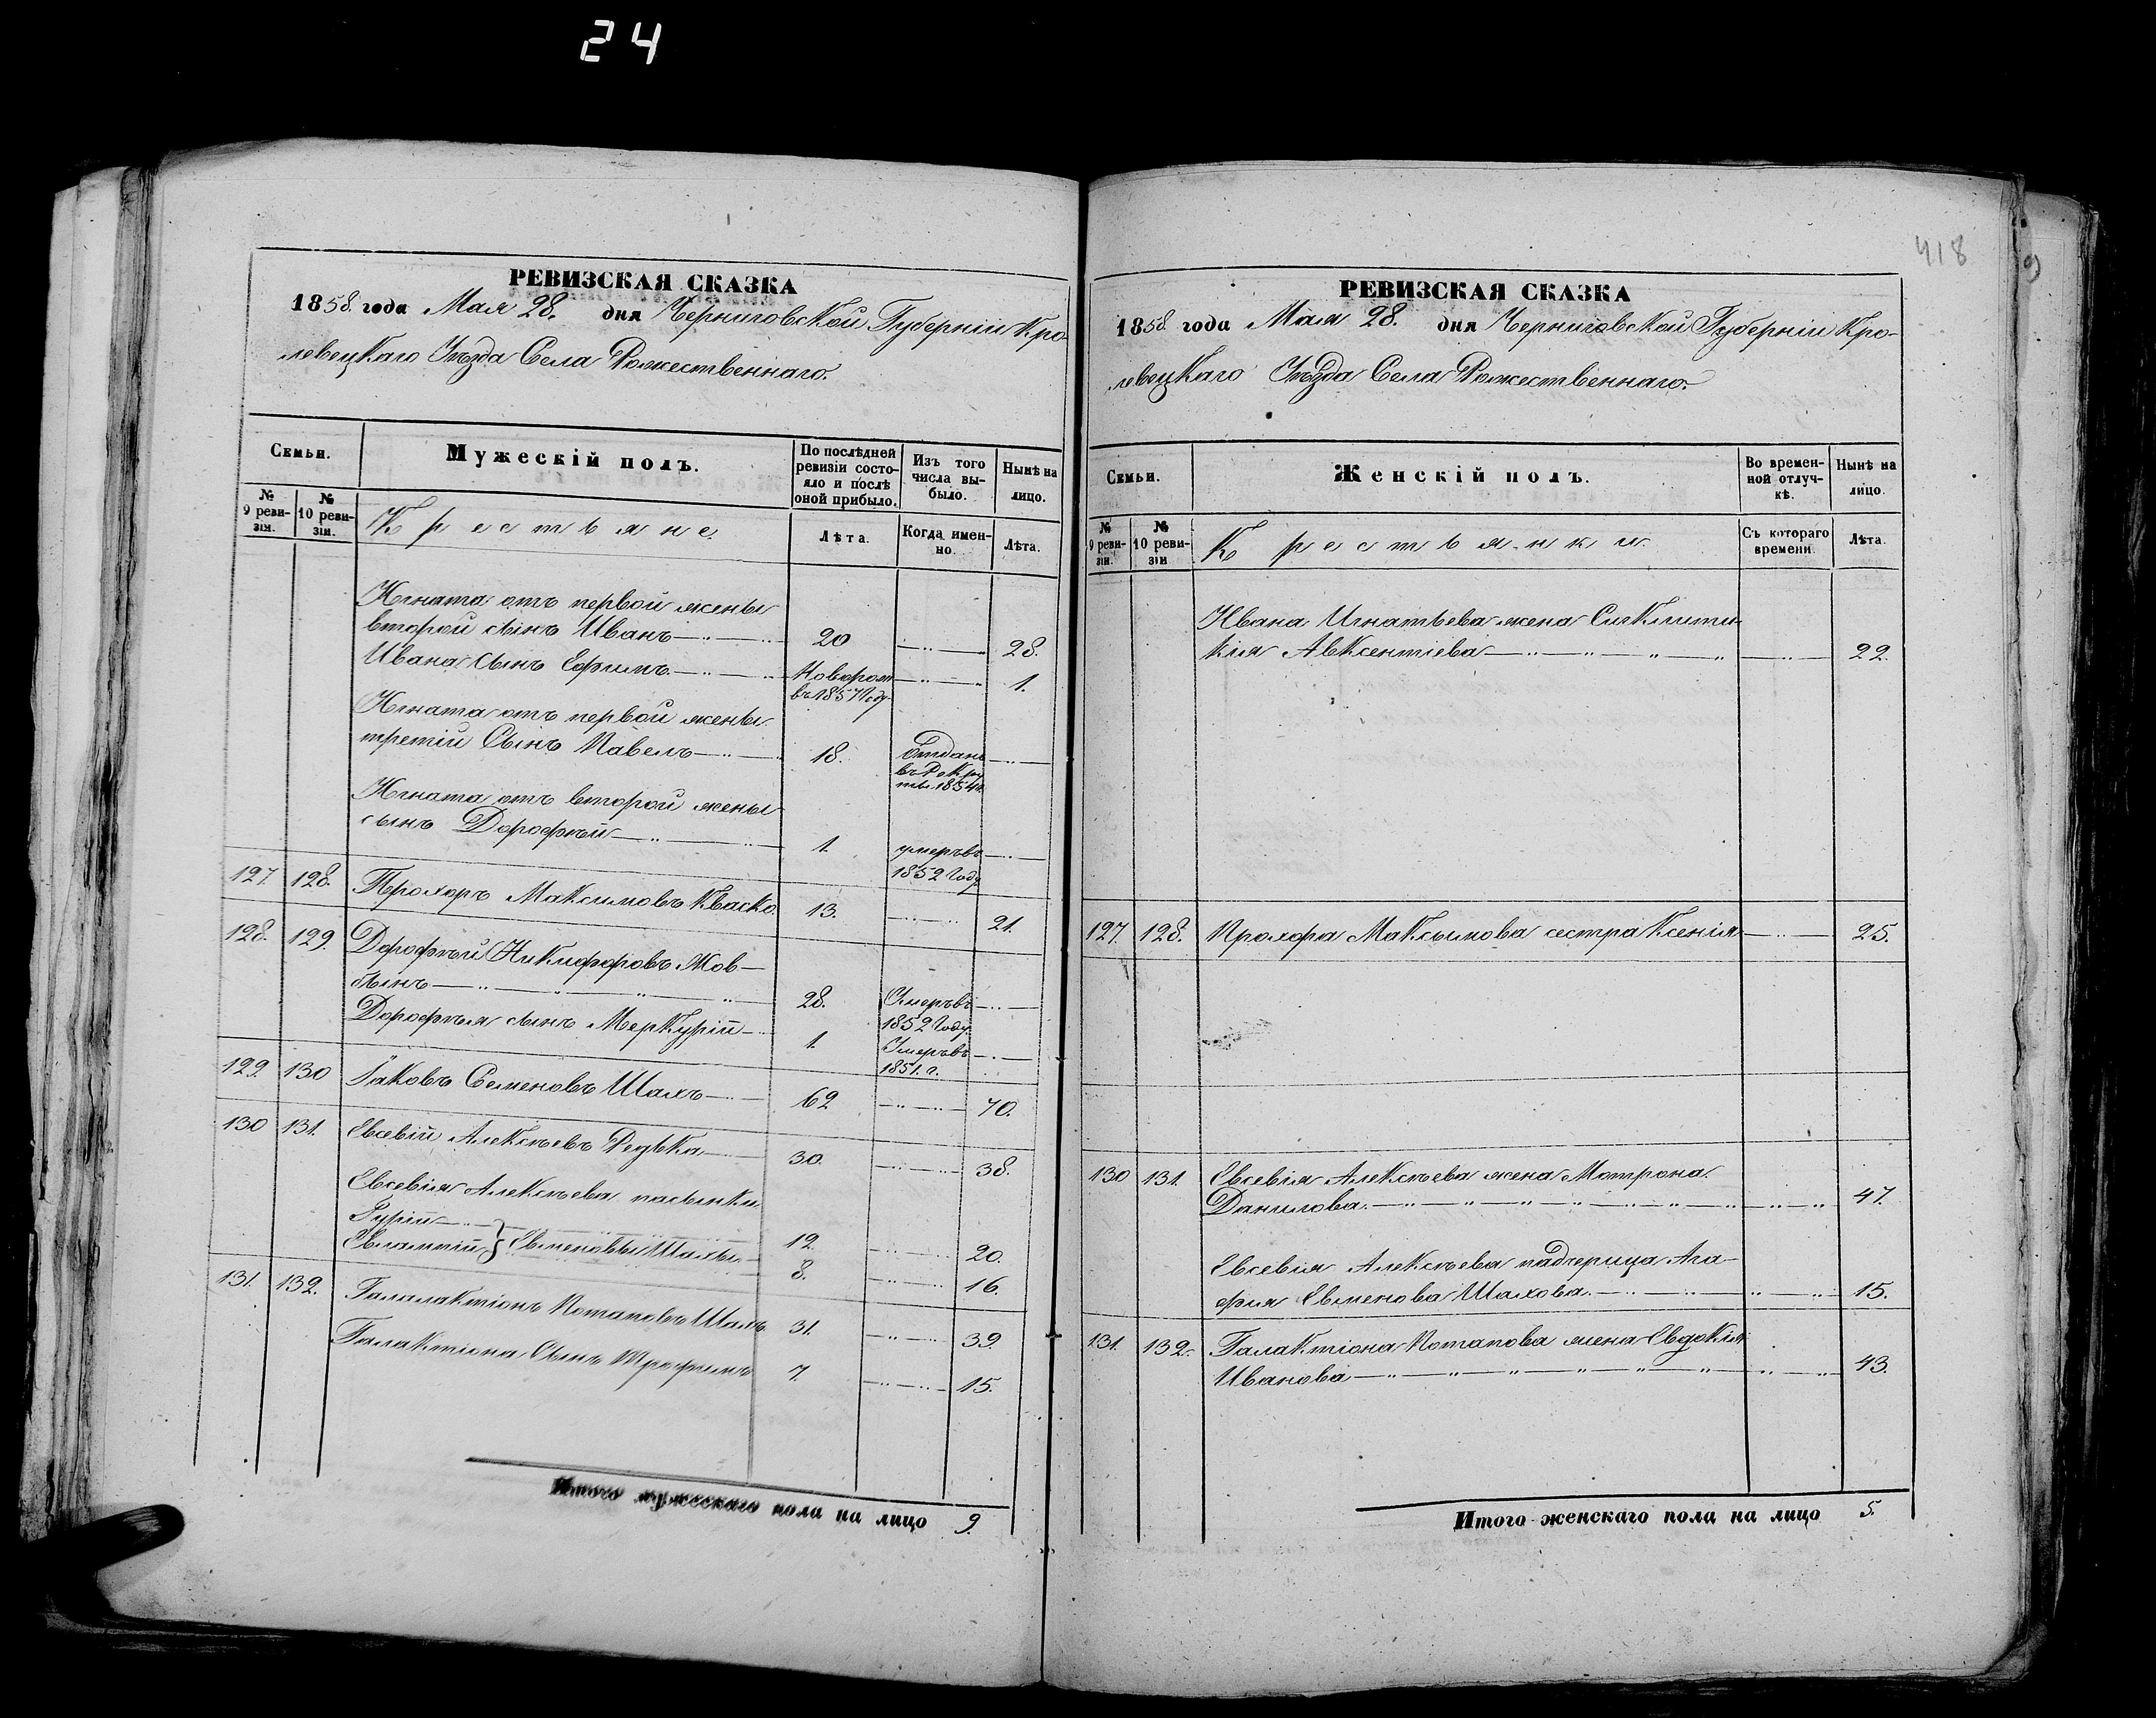 24
418
РЕВИЗСКАЯ СКАЗКА
1858. года Мая 28. дня Черниговской Губерніи Кро-
левецкаго Уѣзда Села Рожественнаго.
Семьи.
Мужескій полъ.
По послѣдней ревизіи состо-яло и послѣ оной прибыло.
Изъ того числа вы-было.
Нынѣ на лицо.
№ 9 реви-зіи.
№ 10 реви-зіи.
Крестьяне.
Лѣта.
Когда имен-но.
Лѣта.
Игната отъ первой жены
второй сынъ Иванъ 20 28.
Ивана сынъ Ефимъ Новорож. 1.
въ 1857 Году
Игната отъ первой жены
третій Сынъ Павелъ 18. Отданъ
въ Рекру
ты 1854
Игната отъ второй жены
сынъ Дорофѣй 1. умеръ въ
1852 Году
127. 128. Прохоръ Максимовъ Кваско 13. 21.
128. 129. Дорофѣй Никифоровъ Жов-
28. Умеръ въ
1852 Году
Дорофѣя сынъ Меркурій 1. Умеръ въ
1851. г.
129. 130 Іаковъ Семеновъ Шахъ 62 70.
130 131. Евсевій Алексѣевъ Редька 30. 38.
Евсевія Алексѣева пасынки
Гурій 12. 20.
Евлампій } Евменовы Шахы 8. 16.
131. 132. Галалактіонъ Потаповъ Шахъ 31. 39.
Галактіона Сынъ Трофимъ 7. 15.
Итого мужескаго пола на лицо 9.
РЕВИЗСКАЯ СКАЗКА
1858 года Мая 28. дня Черниговской Губерніи Кро-
левецкаго Уѣзда Села Рожественнаго.
Семьи.
Женскій полъ.
Во времен-ной отлуч-кѣ.
Нынѣ на лицо.
№ 9 реви-зіи.
№ 10 реви-зіи
Крестьянки.
Съ котораго времени.
Лѣта.
Ивана Игнатьева жена Синклити-
кія Авксентіева 22.
127. 128. Прохора Максимова сестра Ксенія 25.
130 131. Евсевія Алексѣева жена Мотрона
Данилова 47.
Евсевія Алексѣева падчерица Ага-
фія Евменова Шахова. 15.
131. 132. Галактіона Потапова жена Евдокія
Иванова 43.
Итого женскаго пола на лицо 5.